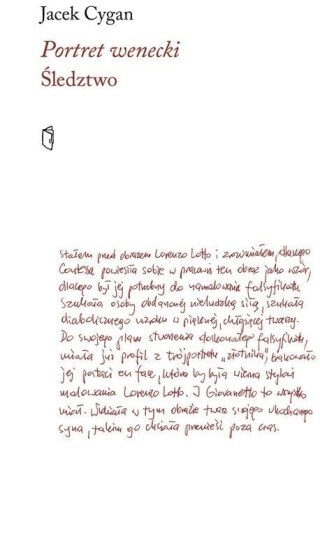 Jacek Cygan
Portret wenecki
Śledztwo
Stałem przed obrazem Lorenzo Lotto i zrozumiałem, dlaczego
Contessa powiesiła sobie w pracowni ten obraz jako wzór,
dlaczego był jej potrzebny do namalowania falsyfikatu.
Szukała osoby obdarzonej nieludzką siłą, szukała
diabolicznego wzroku w pięknej, chłopięcej twarzy.
Do swojego planu stworzenia doskonałego falsyfikatu,
miała już profil z trójportretu „złotnika”, brakowało
jej postaci en face, która by była wierna stylowi
malowania Lorenzo Lotto. I Giovanetto to wszystko
miał. Widziała w tym obrazie twarz swojego ukochanego
syna, takim go chciała przenieść poza czas.